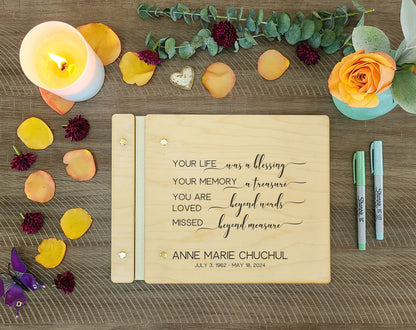 YOUR LIFE was a blessing
YOUR MEMORY a treasure
YOU ARE
LOVED beyond words
MISSED beyond measure
ANNE MARIE CHUCHUL
JULY 3, 1962 - MAY 18, 2024